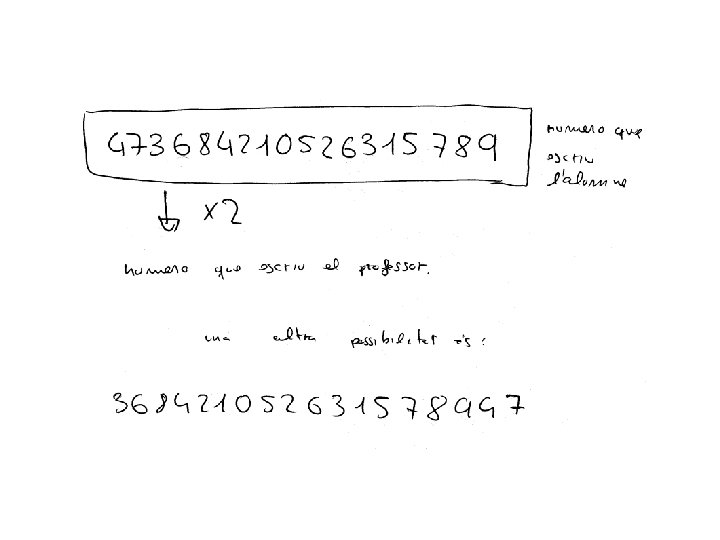 473684210526315789
numero que
escriu
l'alumne
x2
numero que escriu el professor.
una altra possibilitat és:
368421052631578947